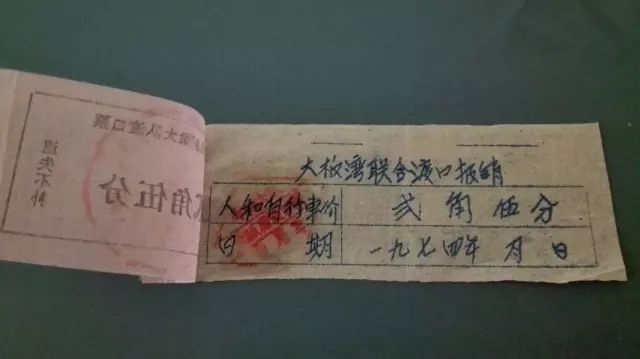 大板湾联合渡口报销
人和自行車价 弍角伍分
日期 一九七四年 月 日
大队渡口票
角伍分
遗失不补